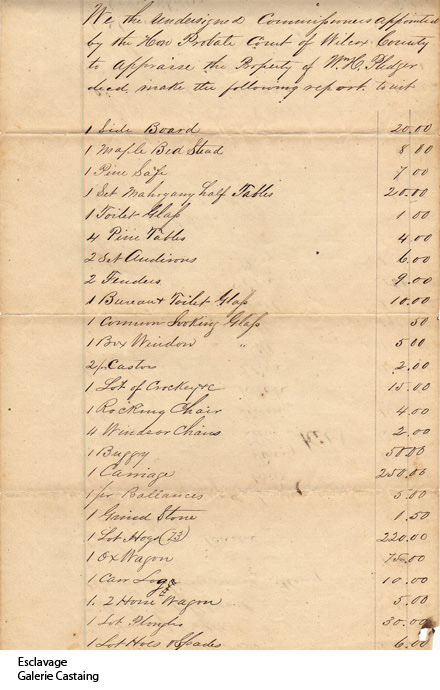 We the undersigned Commissioners appointed
by the Hon Probate Court of Wilcox County
to Appraise the Property of Wm H. Pledger
decd. make the following report to wit
1 Side Board 20.00
1 Maple Bed Stead 8 00
1 Pine Safe 7 00
1 Set Mahogany half Tables 20.00
1 Toilet Glass 1 00
4 Pine Tables 4.00
2 Set Andirons 6.00
2 Fenders 9.00
1 Bureau & Toilet Glass 10.00
1 Common Looking Glass 50
1 Box Window " 5 00
2 pr Castors 2.00
1 Lot of Crockey &c 15.00
1 Rocking Chair 4.00
4 Windsor Chairs 2.00
1 Buggy 50.00
1 Carriage 250.00
1 pr Ballances 5.00
1 Grind Stone 1.50
1 Lot Hogs (73) 220.00
1 Ox Wagon 75.00
1 Carr Log 10.00
1. 2 Horse Wagon 5.00
1 Lot Ploughs 30.00
1 Lot Hoes & Spades 6.00
Esclavage
Galerie Castaing